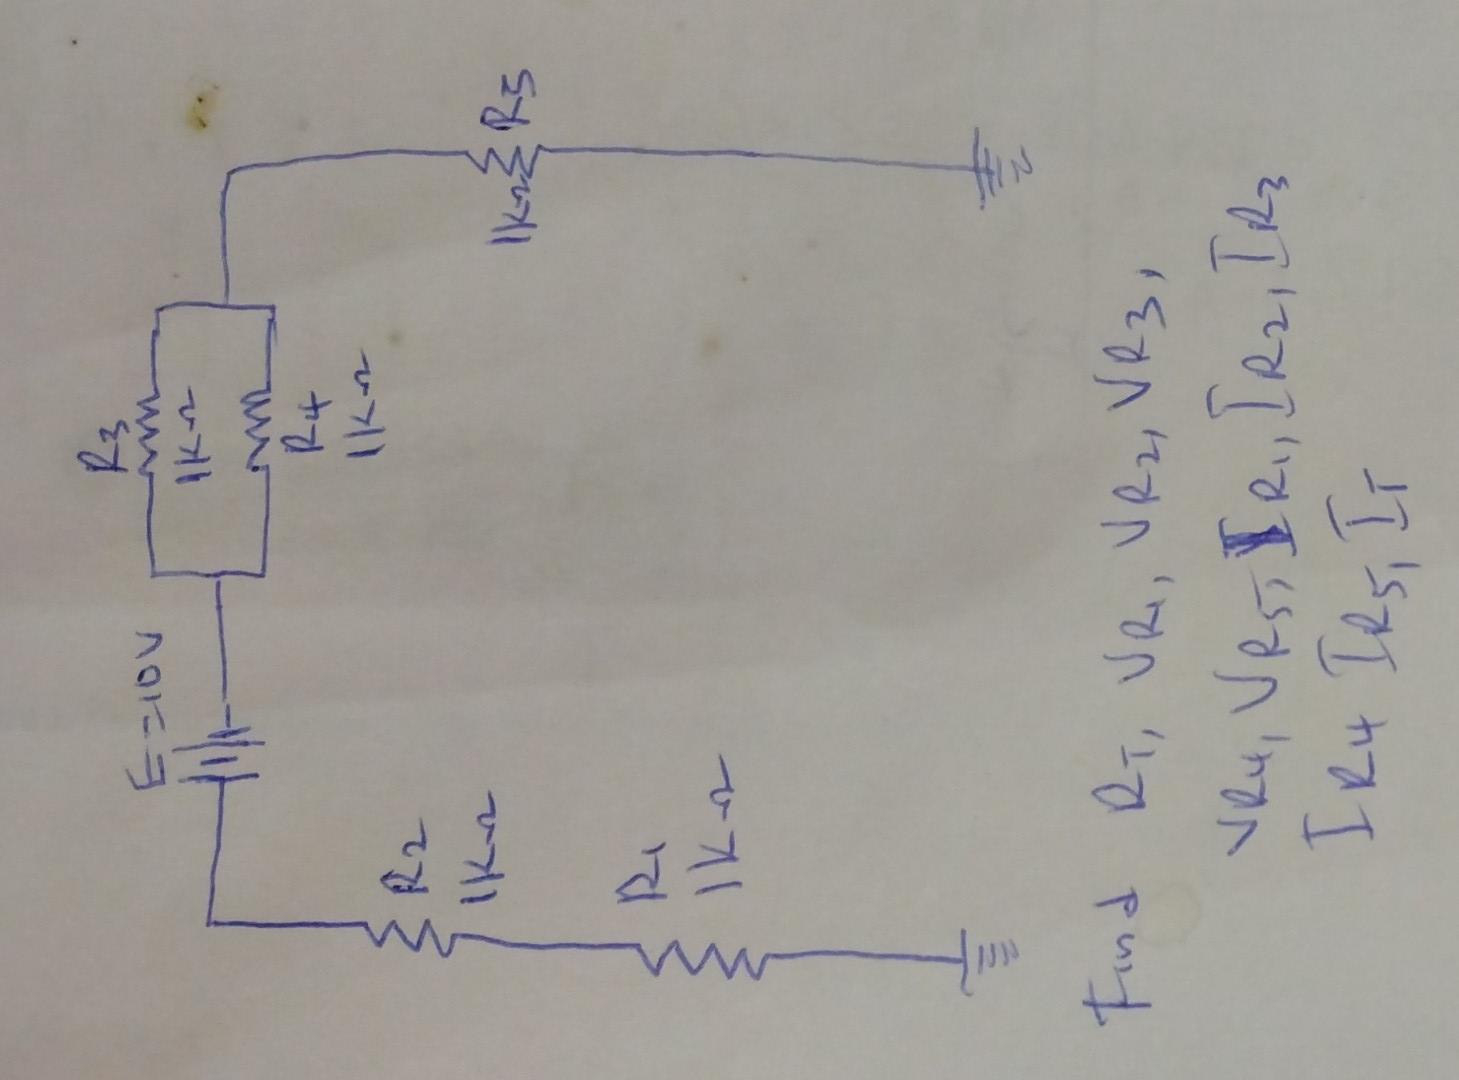 E=10V
R3
1KΩ
R4
1KΩ
R2
1KΩ
R5
1KΩ
R1
1KΩ
Find RT, VR1, VR2, VR3,
VR4, VR5, IR1, IR2, IR3
IR4 IR5, IT